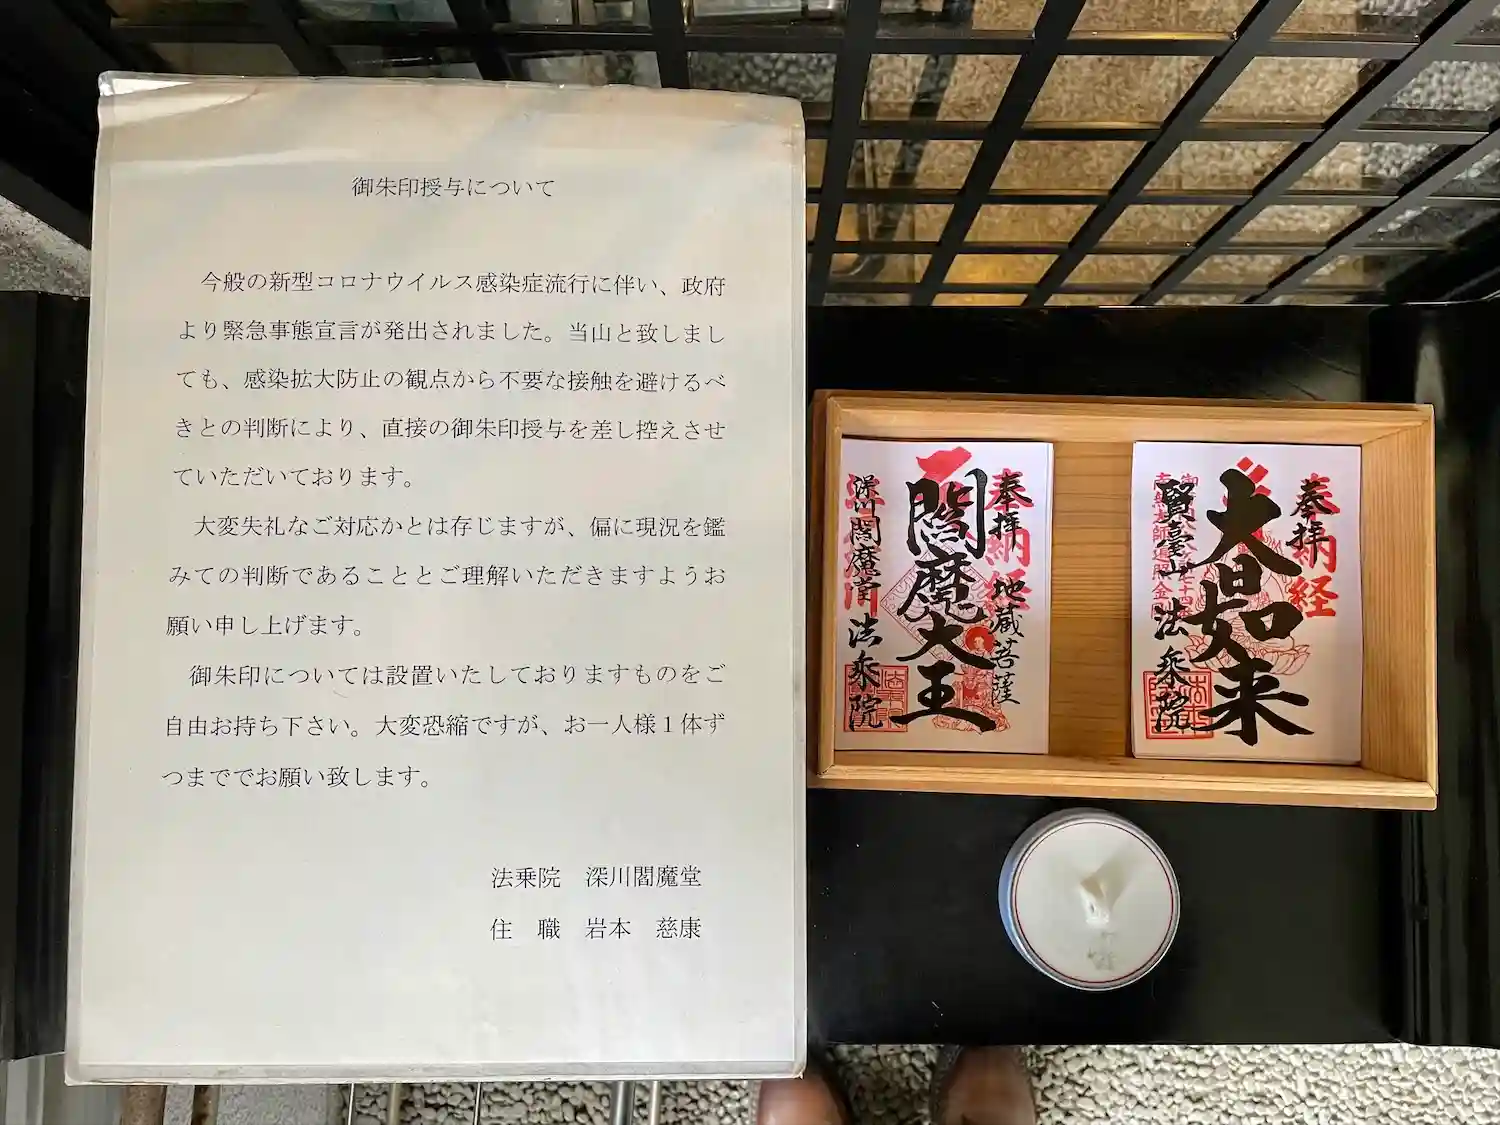 御朱印授与について
今般の新型コロナウイルス感染症流行に伴い、政府
より緊急事態宣言が発出されました。当山と致しまし
ても、感染拡大防止の観点から不要な接触を避けるべ
きとの判断により、直接の御朱印授与を差し控えさせ
ていただいております。
大変失礼なご対応かとは存じますが、偏に現況を鑑
みての判断であることとご理解いただきますようお
願い申し上げます。
御朱印については設置いたしておりますものをご
自由お持ち下さい。大変恐縮ですが、お一人様１体ず
つまででお願い致します。
法乗院　深川閻魔堂
住　職　岩本　慈康
奉拝
納経
地蔵菩薩
閻魔大王
深川閻魔堂
法乗院
奉拝
納経
大日如来
賢臺山
法乗院